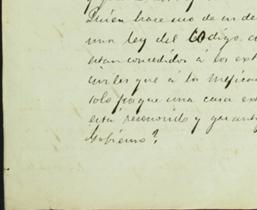 Quien hace uso de un de
una ley del Codigo c
estan concedidos á los ext
civiles que á la Mexican
solo porque una casa ex
está reconocido y garanti
Gobierno?